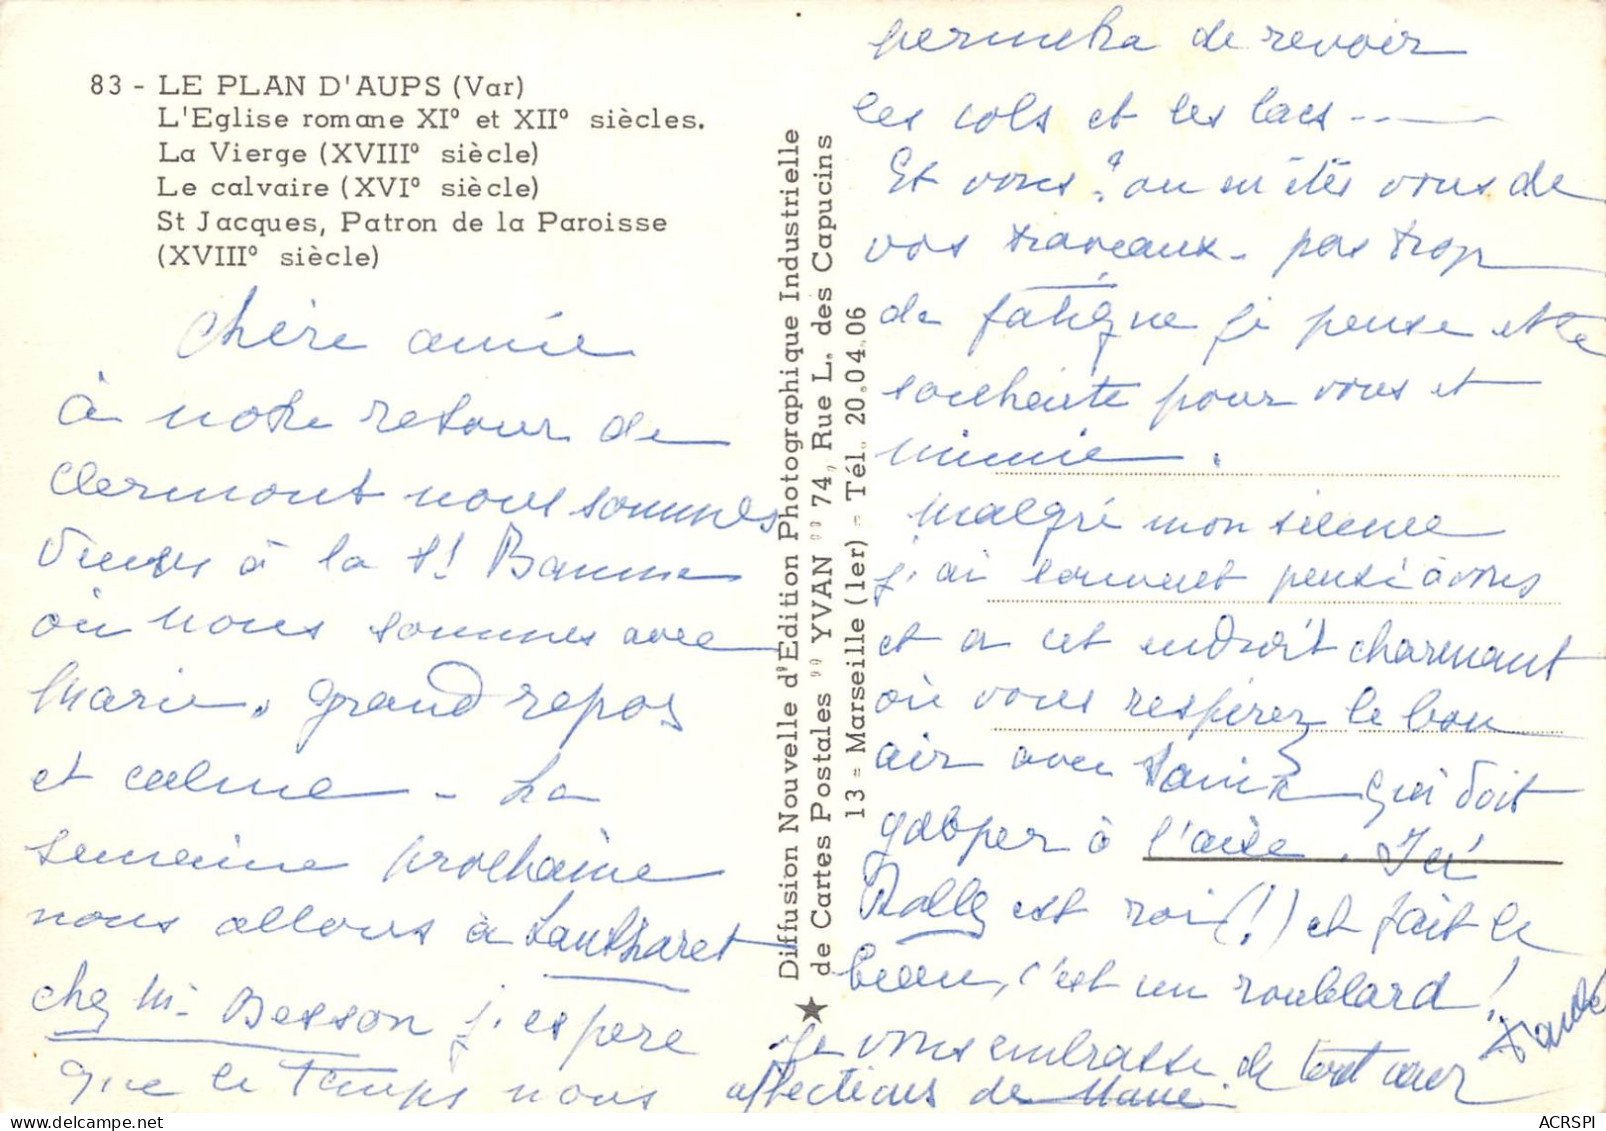 83 - LE PLAN D'AUPS (Var)
L'Eglise romane XI° et XII° siècles.
La Vierge (XVIII° siècle)
Le calvaire (XVI° siècle)
St Jacques, Patron de la Paroisse
(XVIII° siècle)
chère amie
à notre retour de
Clermont nous sommes
venues à la St Baume
où nous sommes avec
Marie. grand repos
et calme - La
semaine prochaine
nous allons à Lautharet
chez M. Besson j'espère
que le temps nous
Diffusion Nouvelle d'Edition Photographique Industrielle
de Cartes Postales "YVAN" 74, Rue L. des Capucins
13 = Marseille (1er) - Tél. 20.04.06
permettra de revoir
les cols et les lacs ----
Et vous? ou en êtes vous de
vos travaux - pas trop
de fatigue je pense et te
souhaite pour vous et
minnie.
Malgré mon silence
j'ai souvent pensé à vous
et a cet endroit charmant
où vous respirez le bon
air avec qui doit
galoper à l'aise. Ici
Rally est roi (!) et fait le
beau, c'est un roublard!
Je vous embrasse de tout cœur
affections de
ACRSPI